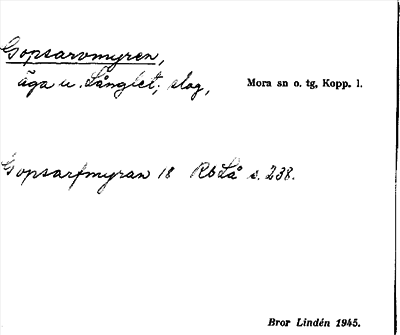 Gopsarvmyren,
äga u. Långlet; slog,
Mora sn o. tg, Kopp. l.
Gopsarfmyran 18 RbLå s. 238.
Bror Lindén 1945.